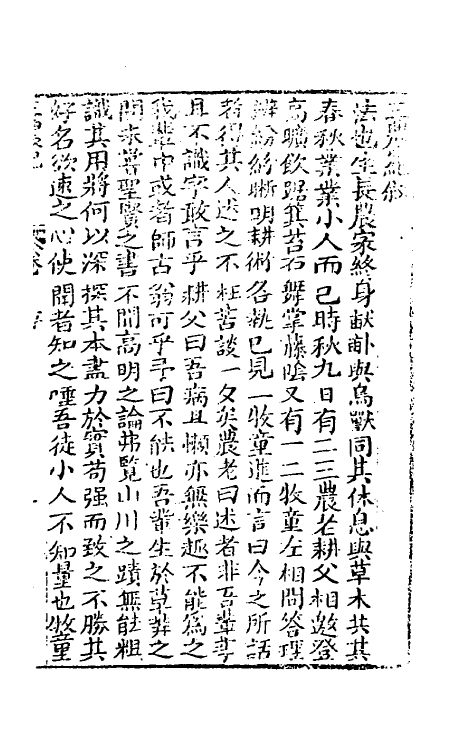 三農紀叙
法也生長農家終身畎畝與鳥獸同其休息與草木共其
春秋業業小人而已時秋九日有二三農老耕父相邀登
高曠飲踞箕苔石舞掌藤陰又有一二牧童左相問答理
辨論剖晰明耕術各執已見一牧童進而言曰今之所話
者得其人述之不枉苦談一夕矣農老曰述者非吾輩事
且不識字敢言乎耕父曰吾病且懶亦無樂趣不能為之
我輩中或者師古翁可乎予曰不能也吾輩生於草莽之
間未嘗聖賢之書不聞高明之論弗覽山川之蹟無能粗
識其用將何以深探其本盡力於實苟强而致之不勝其
好名欲速之心使聞者知之唾吾徒小人不知量也牧童